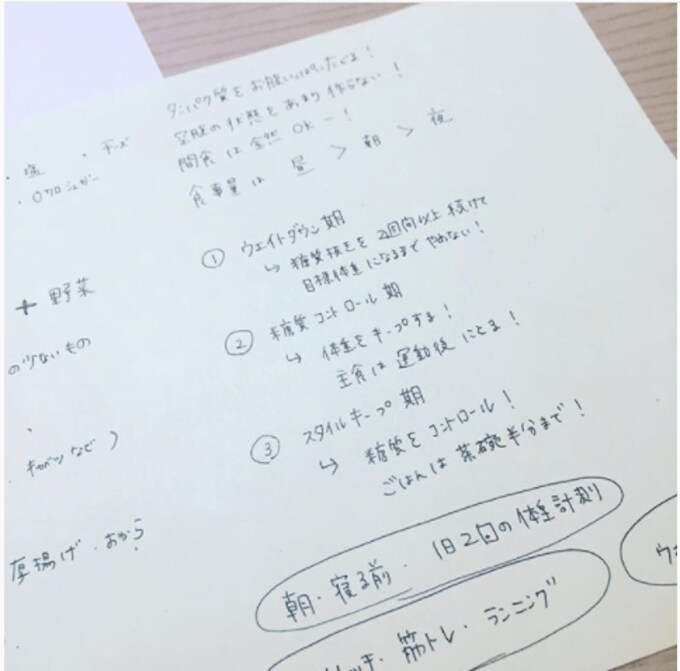 タンパク質をお腹いっぱいたべる！
空腹の状態をあまり作らない！
間食は全然OKー！
食事量は 昼 > 朝 > 夜
・塩 ・チーズ
・0カロシュガー
① ウェイトダウン期
↳ 糖質抜きを2週間以上続けて
目標体重になるまでやめない！
+ 野菜
の少ないもの
② 糖質コントロール期
↳ 体重をキープする！
主食は運動後にとる！
・キャベツなど）
③ スタイルキープ期
↳ 糖質をコントロール！
ごはんは茶碗半分まで！
厚揚げ・おから
朝・寝る前・1日2回の体重計測
筋トレ・ランニング